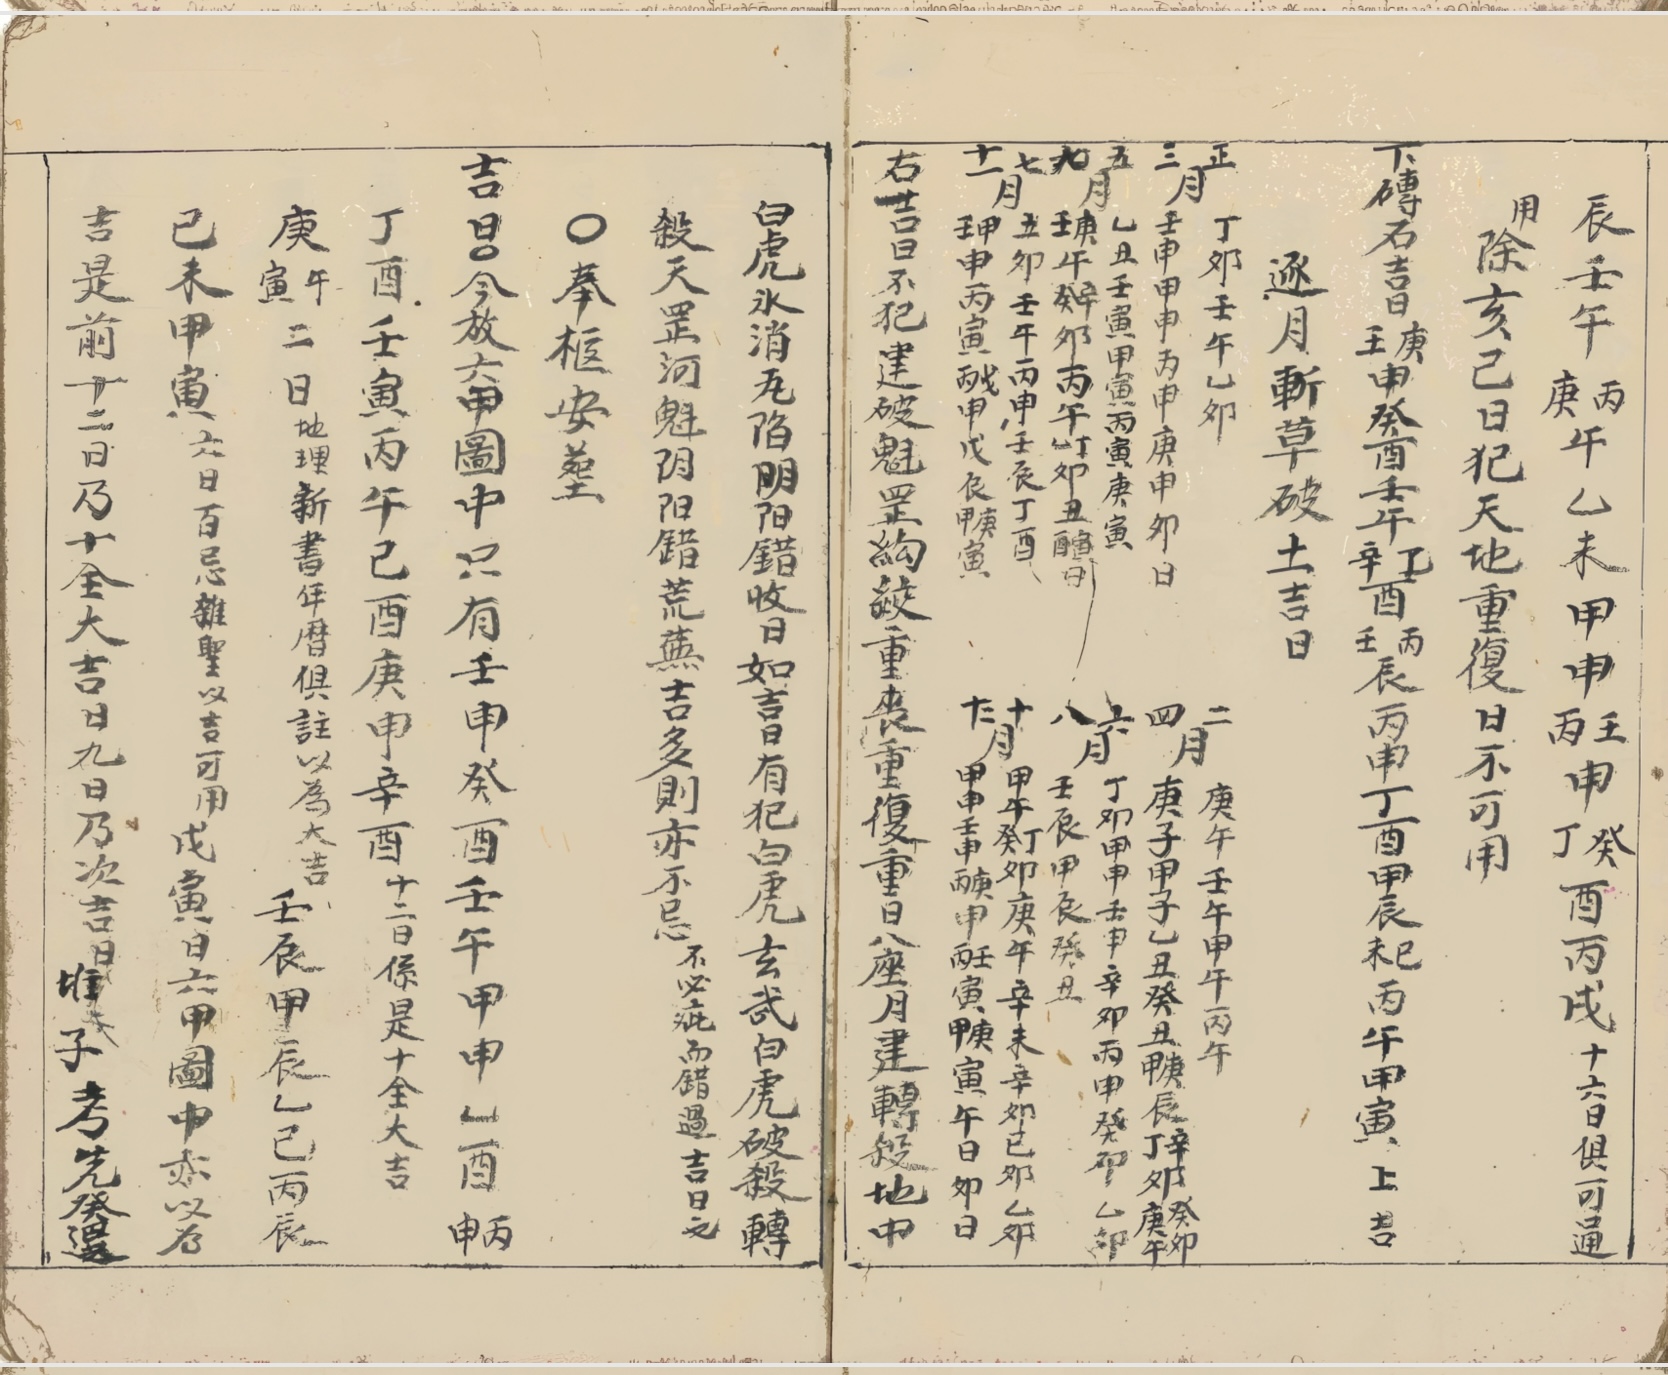 辰壬午丙庚午乙未甲申壬丙申癸丁酉丙戌十六日俱可通
用除亥己日犯天地重復日不可用
下磚石吉日庚壬申癸酉壬午丁辛酉丙壬辰丙申丁酉甲辰未巳丙午甲寅上吉
逐月斬草破土吉日
正月丁卯壬午乙卯
二月庚午壬午甲午丙午
三月壬申甲申丙申庚申卯日
四月庚子甲子乙丑癸丑甲庚辰丁辛卯庚午癸卯
五月乙丑壬寅甲寅丙寅庚寅
六月丁卯甲申壬申辛卯丙申癸卯乙卯
七月丑卯壬午丙申壬辰丁酉
八月壬辰甲辰癸丑
九月壬庚午癸辛卯丙午丁卯丑
十月甲午癸丁卯庚午辛未辛卯己卯乙卯
十一月壬甲申丙寅丙戊甲戊辰甲庚寅
十二月甲申壬申丙庚申丙壬寅甲庚寅午日卯日
右吉日不犯建破魁罡絇絞重喪重復重日八座月建轉殺地中
白虎氷消瓦陷阴阳錯收日如吉日有犯白虎玄武白虎破殺轉
殺天罡河魁阴阳錯荒蕪吉多則亦不忌不必疵而錯過吉日之
○奉柩安塟
吉日○今放六甲圖中只有壬申癸酉壬午甲申乙酉丙申
丁酉壬寅丙午己酉庚申辛酉十二日係是十全大吉
庚午寅二日地理新書年曆俱註以為大吉壬辰甲辰乙巳丙辰
己未甲寅六日百忌雜聖以吉可用戊寅日六甲圖中亦以為
吉是前十二日乃十全大吉日九日乃次吉日
堆子考先癸選